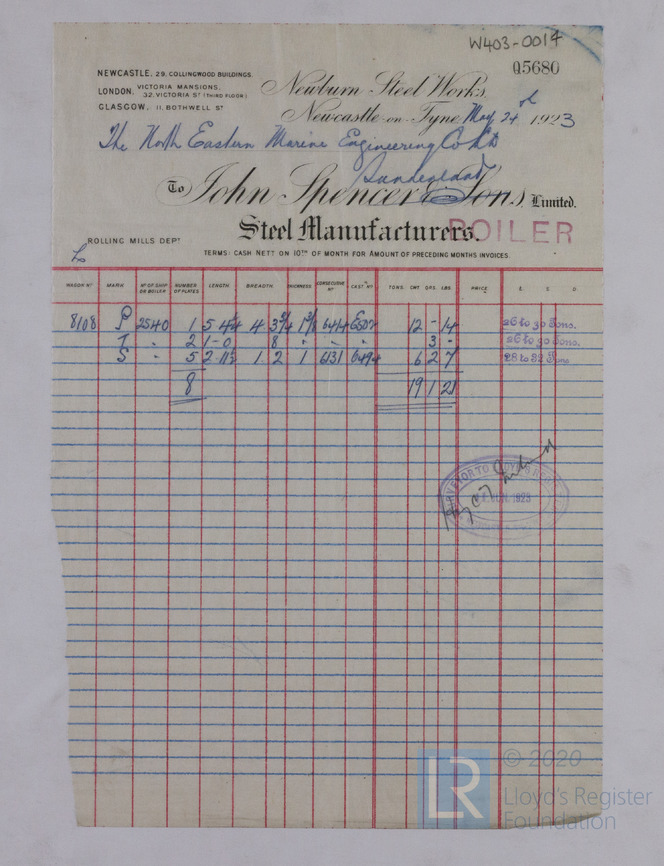 W403-0014
Q5680
NEWCASTLE, 29, COLLINGWOOD BUILDINGS.
LONDON, VICTORIA MANSIONS, 32, VICTORIA ST (THIRD FLOOR)
GLASGOW, 11, BOTHWELL ST
Newburn Steel Works,
Newcastle-on-Tyne, May 24th 1923
The North Eastern Marine Engineering Co Ltd
Sunderland
To John Spencer & Sons, Limited.
Steel Manufacturers. BOILER
ROLLING MILLS DEPT
TERMS: CASH NETT ON 10TH OF MONTH FOR AMOUNT OF PRECEDING MONTHS INVOICES.
WAGON No MARK No OF SHIP OR BOILER NUMBER OF PLATES LENGTH BREADTH THICKNESS CONSECUTIVE No CAST. No TONS CWT QRS. LBS PRICE £ S D
8108 P 2540 1 5 4 3¾ 1 6414 12 - 14 26 to 30 Tons.
" 2 1-0 8 " " " 3 - 26 to 30 Tons.
S " 5 2 1 2 1 6131 6 2 7 28 to 32 Tons
8 19 1 21
SURVEYOR TO LLOYD'S REGISTER
JUN. 1923
© 2020
LR Lloyd's Register
Foundation